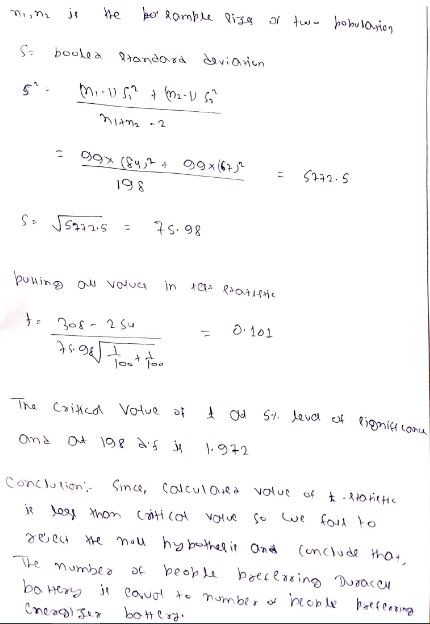 n1, n2 is the sample size of two population
S = pooled standard deviation
S² = (n1-1) S1² + (n2-1) S2² / n1+n2-2
= 99×(84)² + 99×(67)² / 198 = 5772.5
S = √5772.5 = 75.98
putting all values in test statistic
t = 308 - 254 / 75.98 √1/100 + 1/100 = 0.101
The critical value of t at 5% level of significance
and at 198 d.f is 1.972
Conclusion:- Since, calculated value of t-statistic
is less than critical value so we fail to
reject the null hypothesis and conclude that,
The number of people preferring Duracell
battery is equal to number of people preferring
Energizer battery.